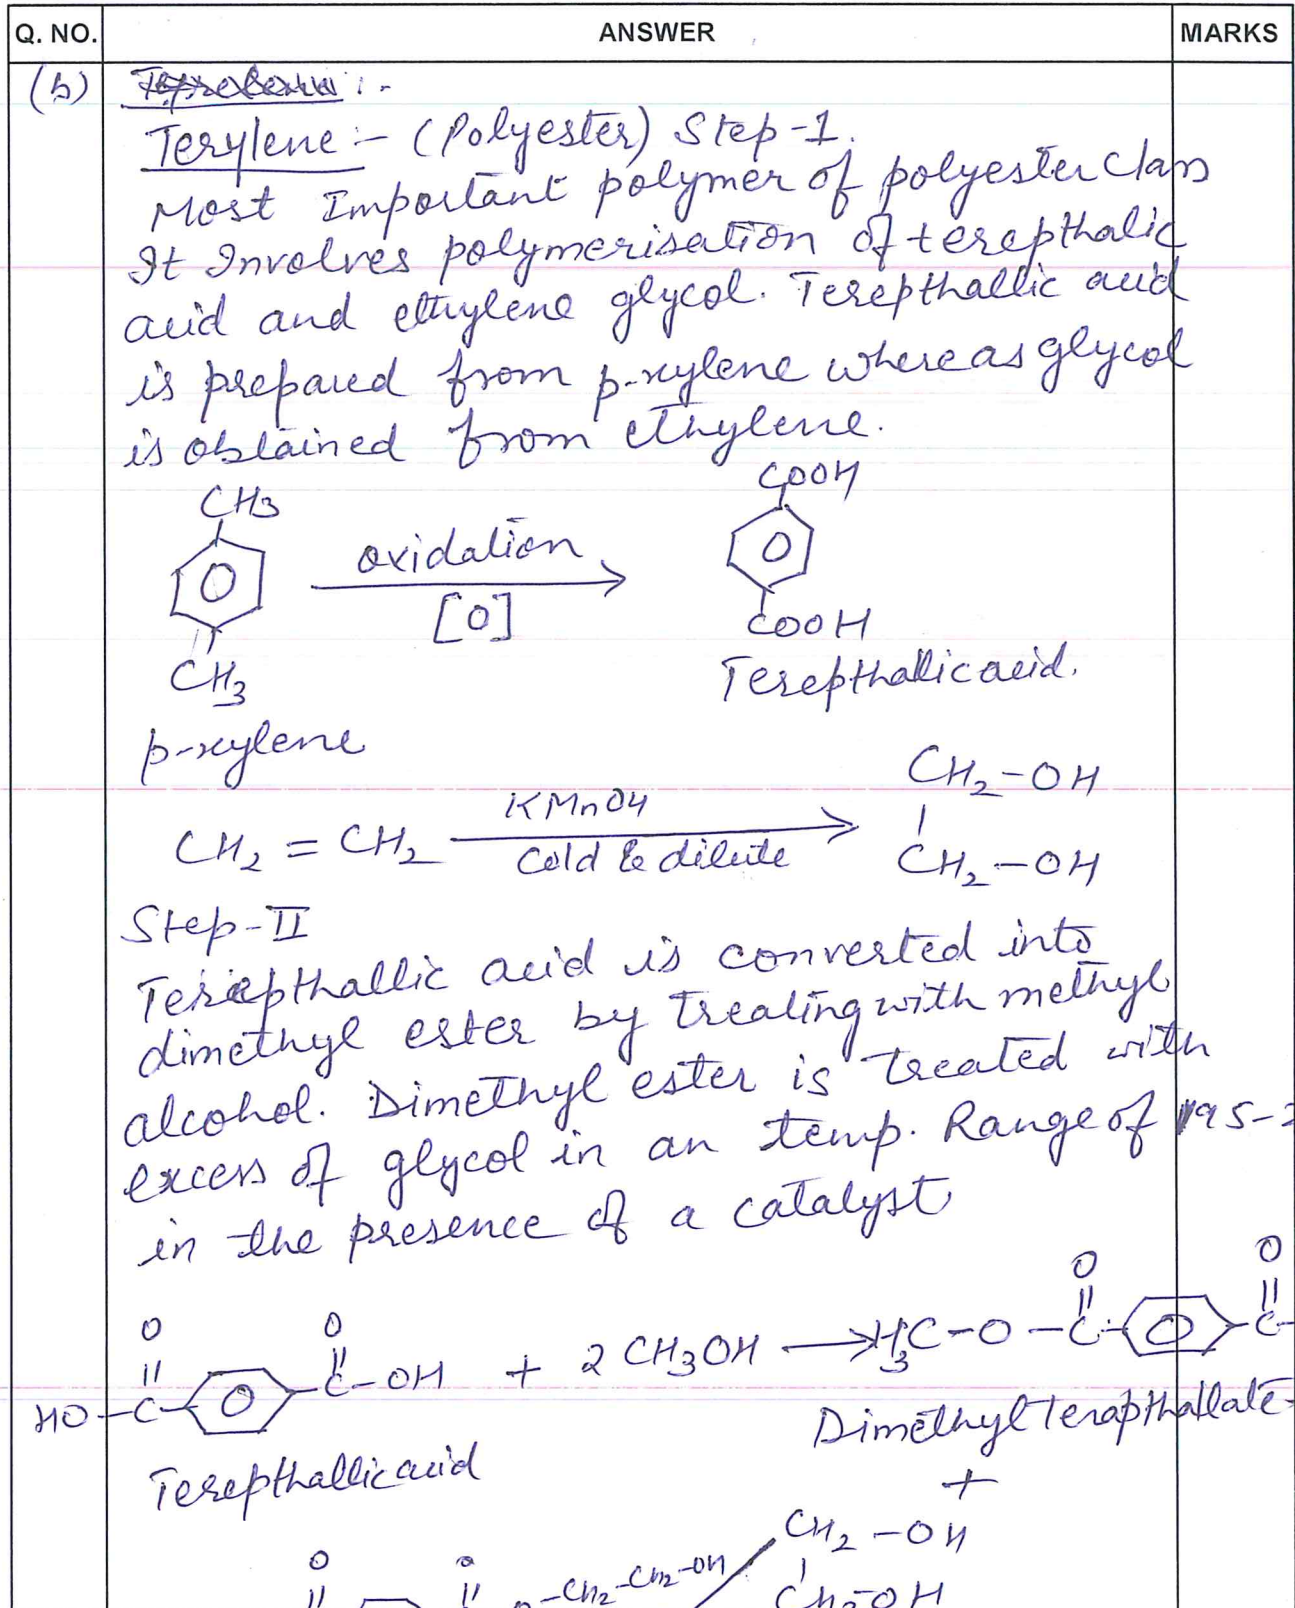 Q. NO. ANSWER MARKS
(b)
Terylene :- (Polyester) Step-1.
Most Important polymer of polyester class
It Involves polymerisation of terepthalic
acid and ethylene glycol. Terepthallic acid
is prepared from p-xylene whereas glycol
is obtained from ethylene.
CH3 COOH
oxidation
[O]
CH3 COOH
Terepthallic acid.
p-xylene
CH2-OH
CH2 = CH2 KMnO4
Cold & dilute
CH2-OH
Step-II
Terepthallic acid is converted into
dimethyl ester by treating with methyl
alcohol. Dimethyl ester is treated with
excess of glycol in an temp. Range of 195-2
in the presence of a catalyst
O O O O
HO-C C-OH + 2 CH3OH → H3C-O-C C-
Dimethyl Terapthallate-
Terepthallic acid
+
CH2-OH
O O O-CH2-CH2-OH
CH2-OH